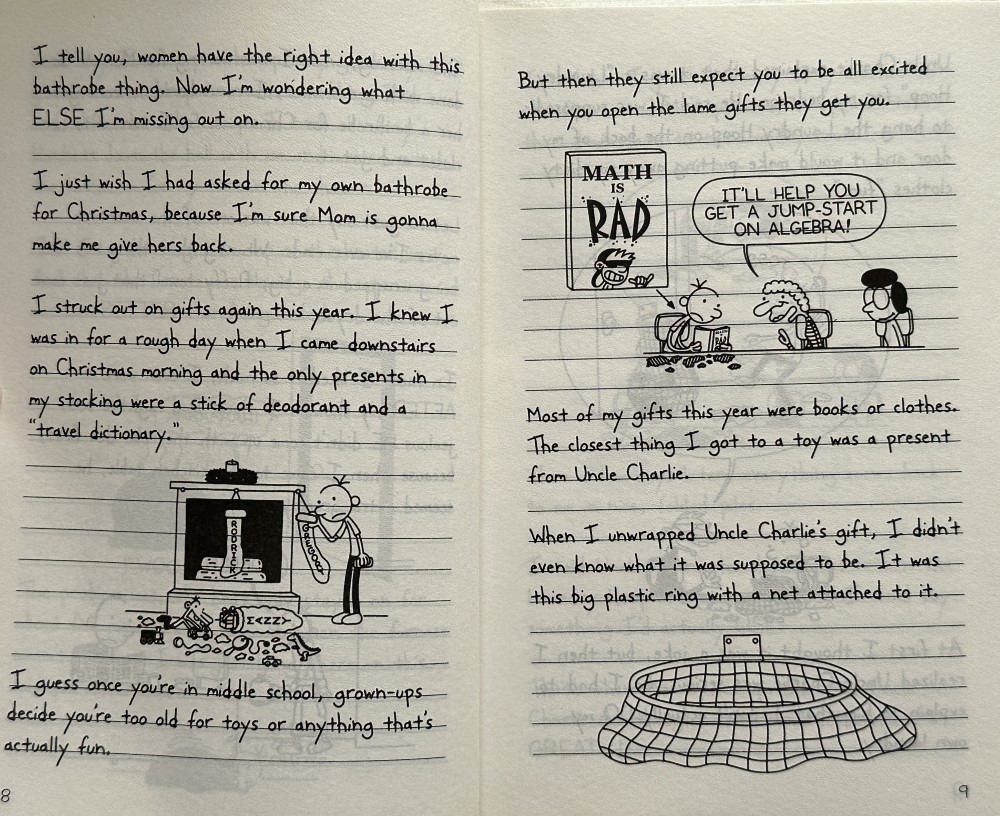 I tell you, women have the right idea with this
bathrobe thing. Now I'm wondering what
ELSE I'm missing out on.
I just wish I had asked for my own bathrobe
for Christmas, because I'm sure Mom is gonna
make me give hers back.
I struck out on gifts again this year. I knew I
was in for a rough day when I came downstairs
on Christmas morning and the only presents in
my stocking were a stick of deodorant and a
"travel dictionary."
RODRICK
GREGORY
MANNY
I guess once you're in middle school, grown-ups
decide you're too old for toys or anything that's
actually fun.
8
But then they still expect you to be all excited
when you open the lame gifts they get you.
MATH
IS
RAD
IT'LL HELP YOU
GET A JUMP-START
ON ALGEBRA!
MATH
IS
RAD
Most of my gifts this year were books or clothes.
The closest thing I got to a toy was a present
from Uncle Charlie.
When I unwrapped Uncle Charlie's gift, I didn't
even know what it was supposed to be. It was
this big plastic ring with a net attached to it.
9